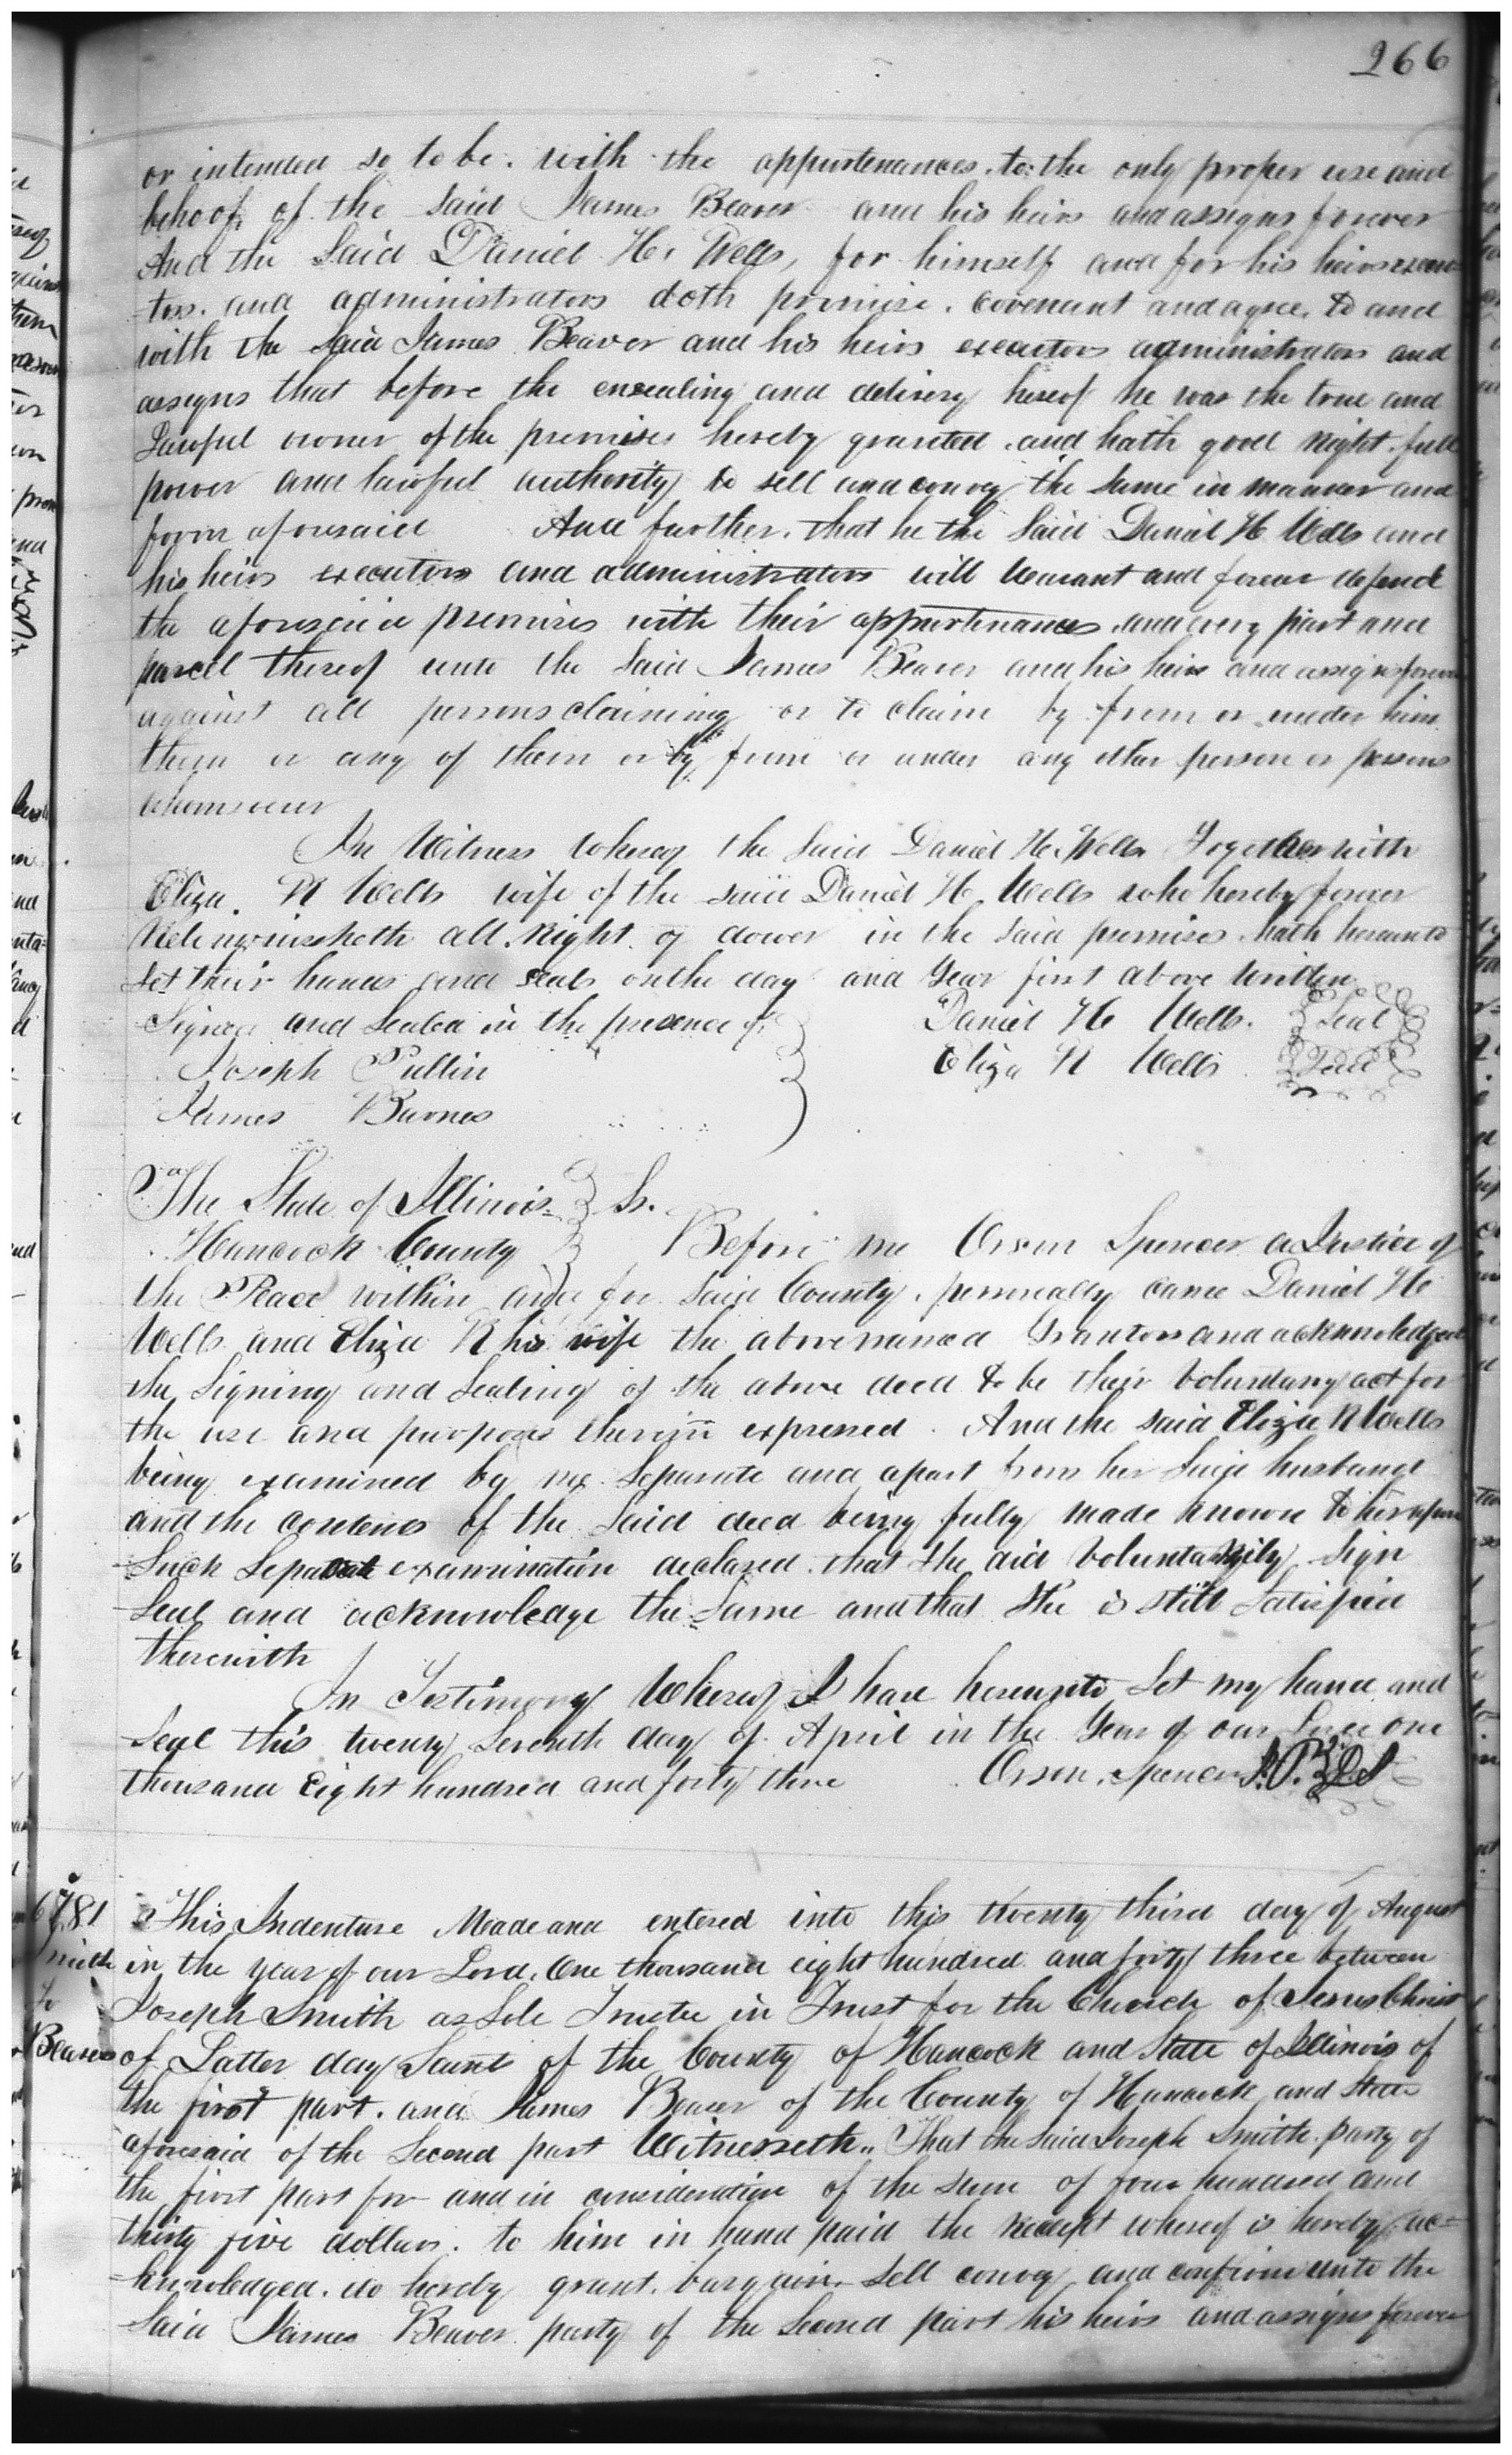 266
or intended so to be. with the appurtenances. to the only proper use and
behoof, of the said James Beaver and his heirs and assigns forever
And the said Daniel H. Wells, for himself and for his heirs execu-
tors. and administrators doth promise. covenant and agree, to and
with the said James Beaver and his heirs executors administrators and
assigns that before the ensealing and delivery hereof he was the true and
Lawful owner of the premises hereby granted. and hath good right. full
power and lawful authority to sell and convey the same in manner and
form aforesaid And further. that he the said Daniel H Wells and
his heirs executors and administrators will warrant and forever defend
the aforesaid premises with their appurtenances. and every part and
parcel thereof unto the said James Beaver and his heirs and assigns forever
against all persons claiming or to claim by from or under him
them or any of them or by from or under any other person or persons
whomsoever
In Witness whereof the said Daniel H. Wells Together with
Eliza. R Wells wife of the said Daniel H. Wells who hereby forever
Relinquisheth all. Right of dower in the said premises. hath hereunto
set their hands and seals on the day and Year first above written
Signed and Sealed in the presence of Daniel H Wells. Seal
Joseph Pullin Eliza R Wells Seal
James Barnes
The State of Illinois Ss.
Hancock County Before me Orson Spencer a Justice of
the Peace within and for said County. personally came Daniel H
Wells and Eliza R his wife the above named Grantors and acknowledged
the Signing and Sealing of the above deed to be their voluntary act for
the use and purposes therein expressed. And the said Eliza R Wells
being examined by me. Separate and apart from her said husband
and the contents of the said deed being fully made known to her upon
Such Separate examination declared. that she did voluntarily Sign
Seal and acknowledge the Same and that She is still satisfied
therewith
In Testimony Whereof I have hereunto Set my hand and
Seal this twenty Seventh day of April in the Year of our Lord one
thousand Eight hundred and forty three Orson. Spencer J.P. LS
6781 This Indenture Made and entered into this twenty third day of August
Smith in the year of our Lord. One thousand eight hundred and forty three between
to Joseph Smith as Sole Trustee in Trust for the Church of Jesus Christ
Beaver of Latter day Saints of the County of Hancock and State of Illinois of
the first part. and James Beaver of the County of Hancock and State
aforesaid of the Second part Witnesseth" That the said Joseph Smith. party of
the first part for and in consideration of the sum of four hundred and
thirty five dollars. to him in hand paid the receipt whereof is hereby ac=
knowledged. do hereby grant. bargain. Sell convey and confirm unto the
Said James Beaver party of the Second part his heirs and assigns forever